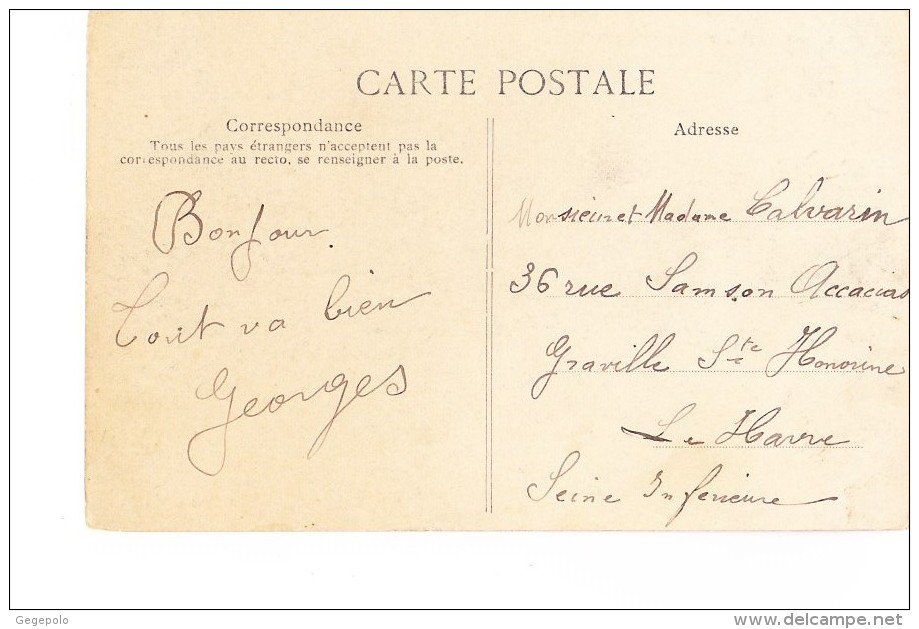 CARTE POSTALE
Correspondance
Tous les pays étrangers n'acceptent pas la
correspondance au recto, se renseigner à la poste.
Bonjour
Tout va bien
Georges
Adresse
Monsieur et Madame Calvarin
36 rue Samson Accacias
Graville Ste Honorine
Le Havre
Seine Inferieure
Gegepolo
www.delcampe.net